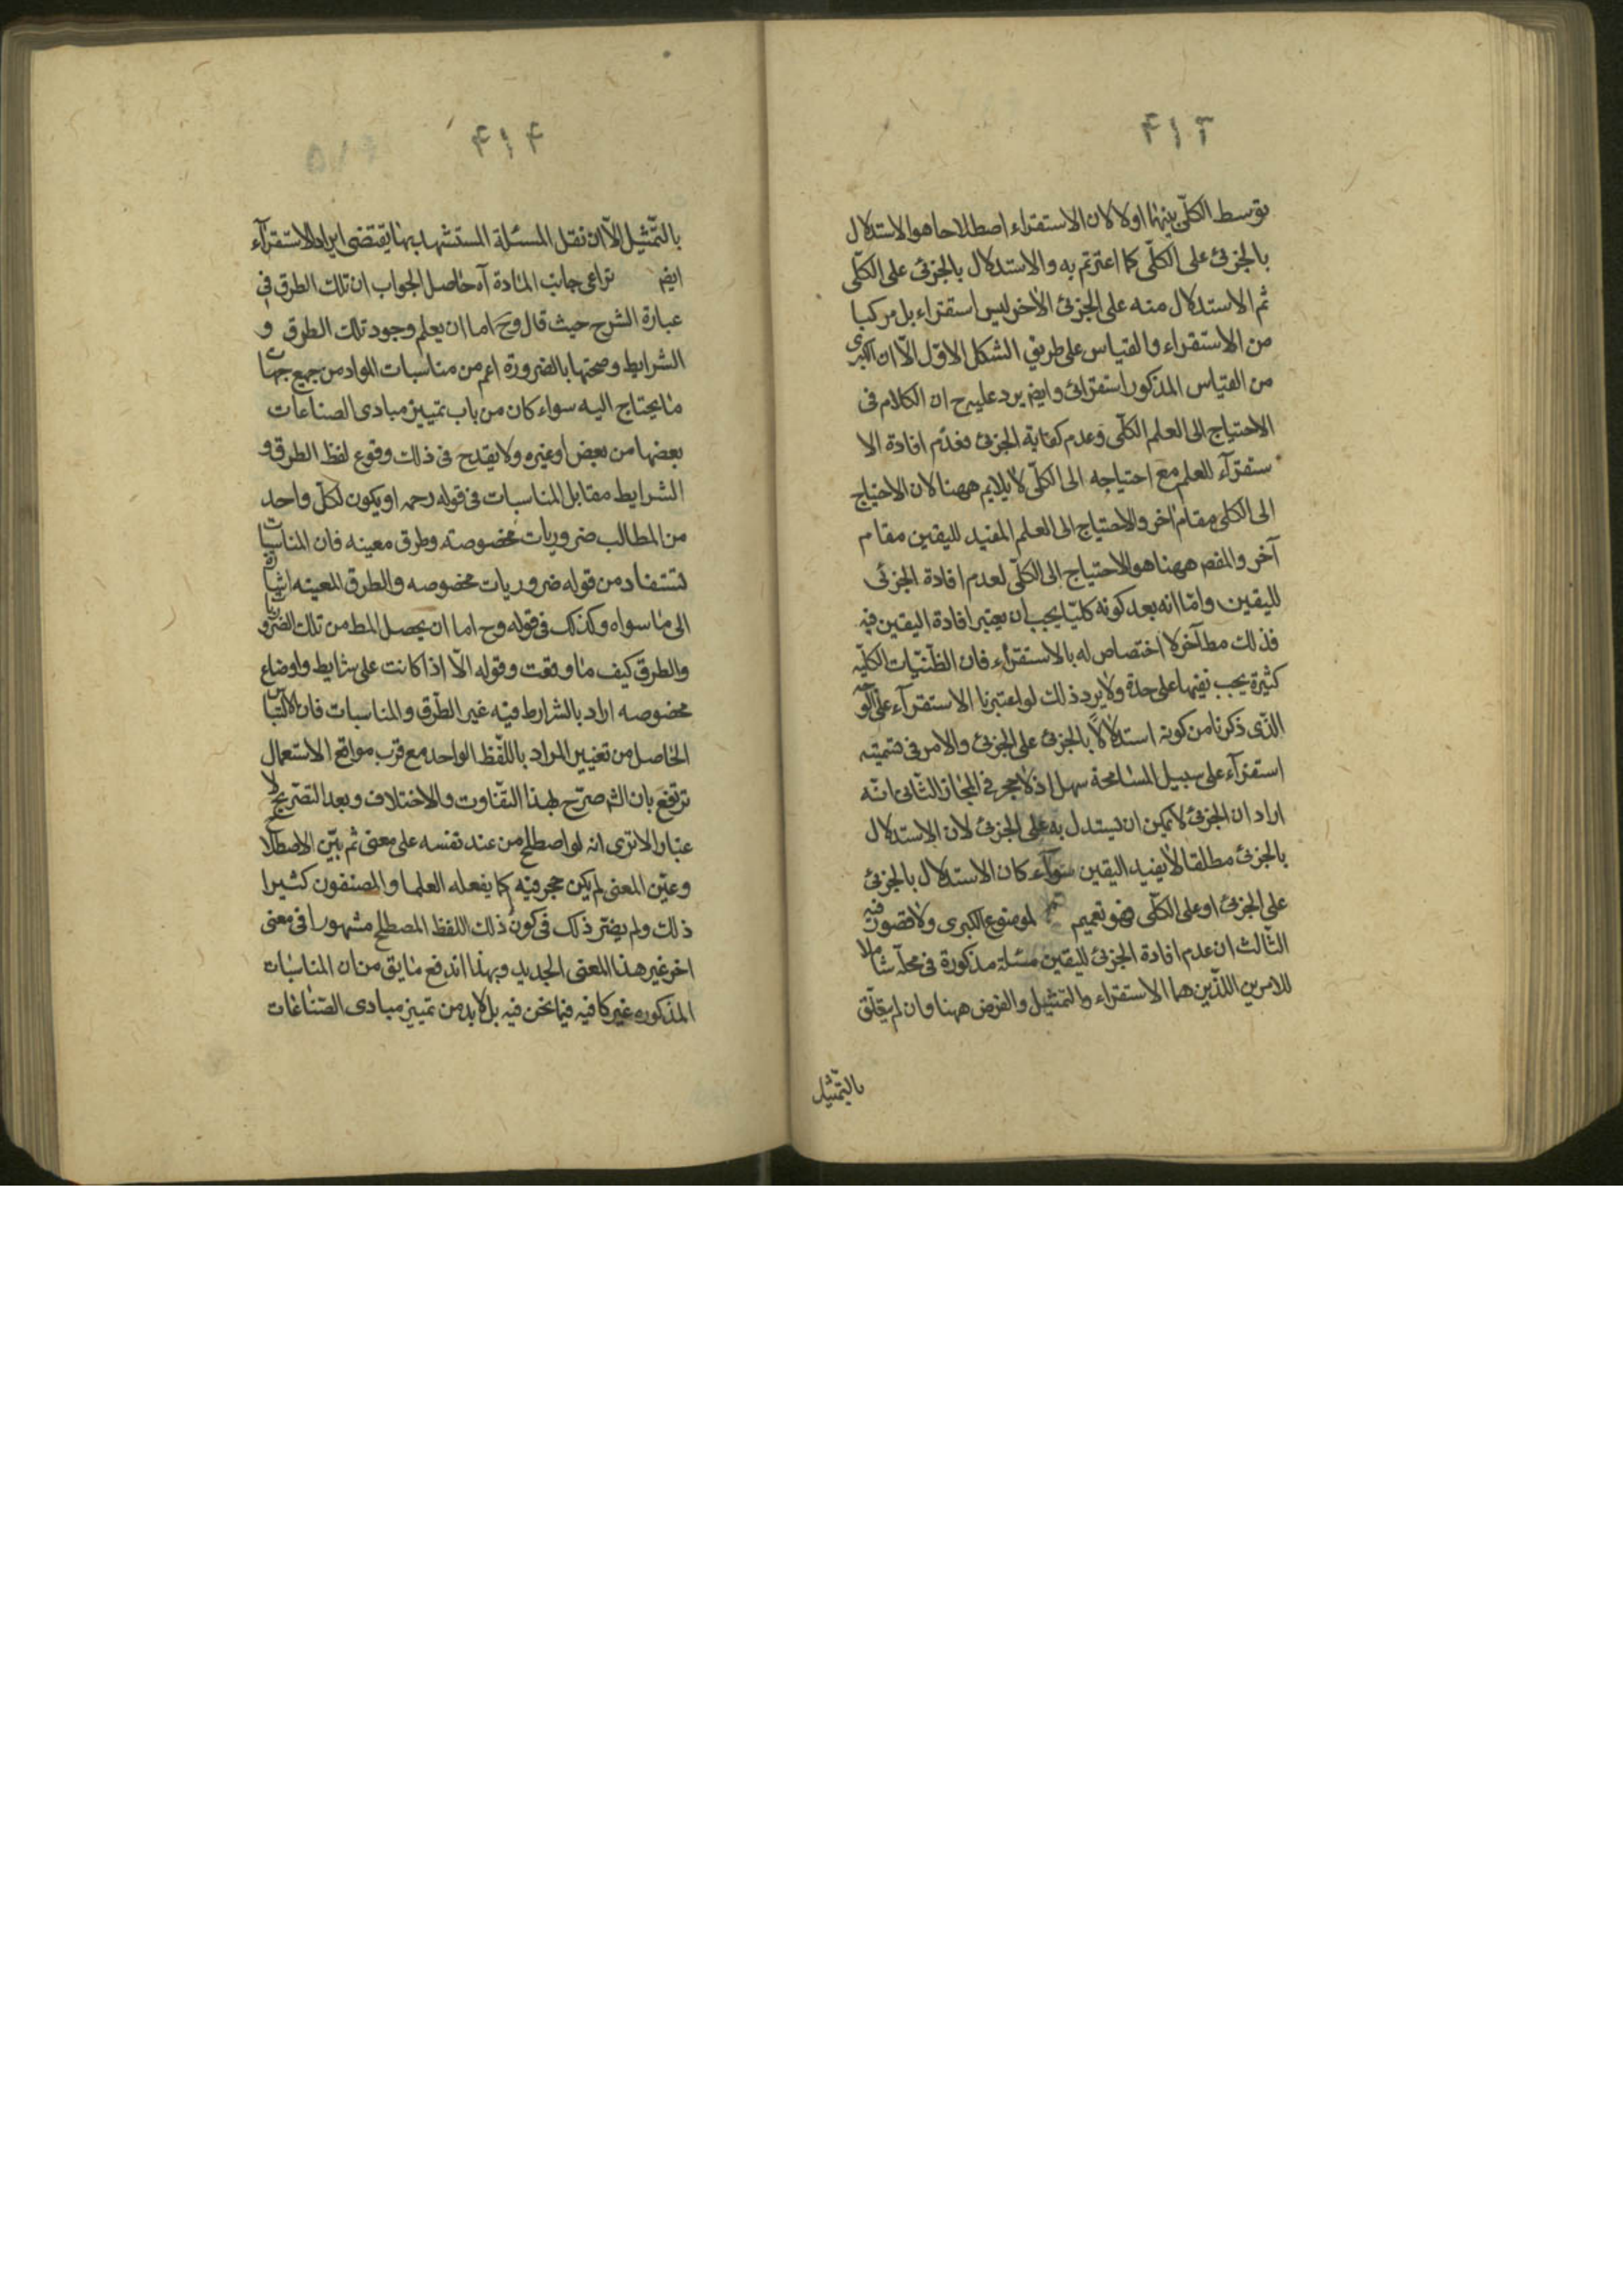 ۴۱۳
بتوسط الكلّي بينهما اولا لان الاستقراء اصطلاحا هو الاستدلال
بالجزئ على الكلّى كما اعترتم به والاستدلال بالجزئ على الكلّى
ثم الاستدلال منه على الجزئ الاخر ليس استقراء بل مركبا
من الاستقراء والقياس على طريق الشكل الاوّل الّا ان الكبرى
من القياس المذكور استقرائ وايض يرد عليه ح ان الكلام فى
الاحتياج الى العلم الكلّى وعدم كفاية الجزئ فعدم افادة الا
ستقرآء للعلم مع احتياجه الى الكلّى لا يلايم ههنا لان الاحتياج
الى الكلى مقام اخر والاحتياج الى العلم المفيد لليقين مقام
آخر والمقص ههنا هو الاحتياج الى الكلّى لعدم افادة الجزئى
لليقين وامّا انه بعد كونه كليّا يجب ان يعتبر افادة اليقين فيه
فذلك مط آخر لا اختصاص له بالاستقرأء فان الظّنّيّات الكليّه
كثيرة يجب نفيها على حدة ولا يرد ذلك لو اعتبرنا الاستقرآء على
الذّى ذكرنا من كونه استدلالاً بالجزئ على الجزئ والامر فى تسميته
استقرآء على سبيل المسامحة سهل اذ لا حجر فى المجاز الثّانى انّه
اراد ان الجزئ لا يمكن ان يستدل به على الجزئ لان الاستدلال
بالجزئ مطلقا لا يفيد اليقين سوآء كان الاستدلال بالجزئ
على الجزئ او على الكلّى فهو تعميم لموضوع الكبرى ولا قصور فيه
الثّالث ان عدم افادة الجزئ لليقين مسئلة مذكورة فى محلّه شاملا
للامرين اللذّين هما الاستقراء والتّمثيل والغرض ههنا وان لم يتعلّق
بالتّمثيل
۴۱۴
بالتّمثيل الّا ان نقل المسئلة المستشهد بها يقتضى ايراد الاستقرآء
ايض تراعى جانب المادة آه حاصل الجواب ان تلك الطرق فى
عبارة الشرح حيث قال وح اما ان يعلم وجود تلك الطرق و
الشرايط وصحتها بالضرورة اعم من مناسبات المواد من جميع جهات
ما يحتاج اليه سواء كان من باب تمييز مبادى الصناعات
بعضها من بعض او غيره ولا يقدح فى ذلك وقوع لفظ الطرق و
الشرايط مقابل المناسبات فى قوله رحمه او يكون لكلّ واحد
من المطالب ضروريات مخصوصته وطرق معينه فان المناسبات
تستفاد من قوله ضروريات مخصوصه والطرق المعينه اشارة
الى ما سواه وكذلك فى قوله وح اما ان يحصل المط من تلك الضروريات
والطرق كيف ما وقعت وقوله الّا اذا كانت على شرايط واوضاع
مخصوصه اراد بالشرايط فيه غير الطّرق والمناسبات فان الالتباس
الحاصل من تغيير المراد باللّفظ الواحد مع قرب مواقع الاستعمال
ترتفع بان الش صرّح بهذا التفاوت والاختلاف وبعد التصّريح لا
عبار الا ترى انه لو اصطلح من عند نفسه على معنى ثم بيّن الاصطلاح
وعيّن المعنى لم يكن حجر فيه كما يفعله العلما والمصنفون كثيرا
ذلك ولم يضرّ ذلك فى كون ذلك اللفظ المصطلح مشهورا فى معنى
اخر غير هذا المعنى الجديد وبهذا اندفع ما يق من ان المناسبات
المذكوره غير كافيه فيما نحن فيه بل لا بد من تمييز مبادى الصّناعات